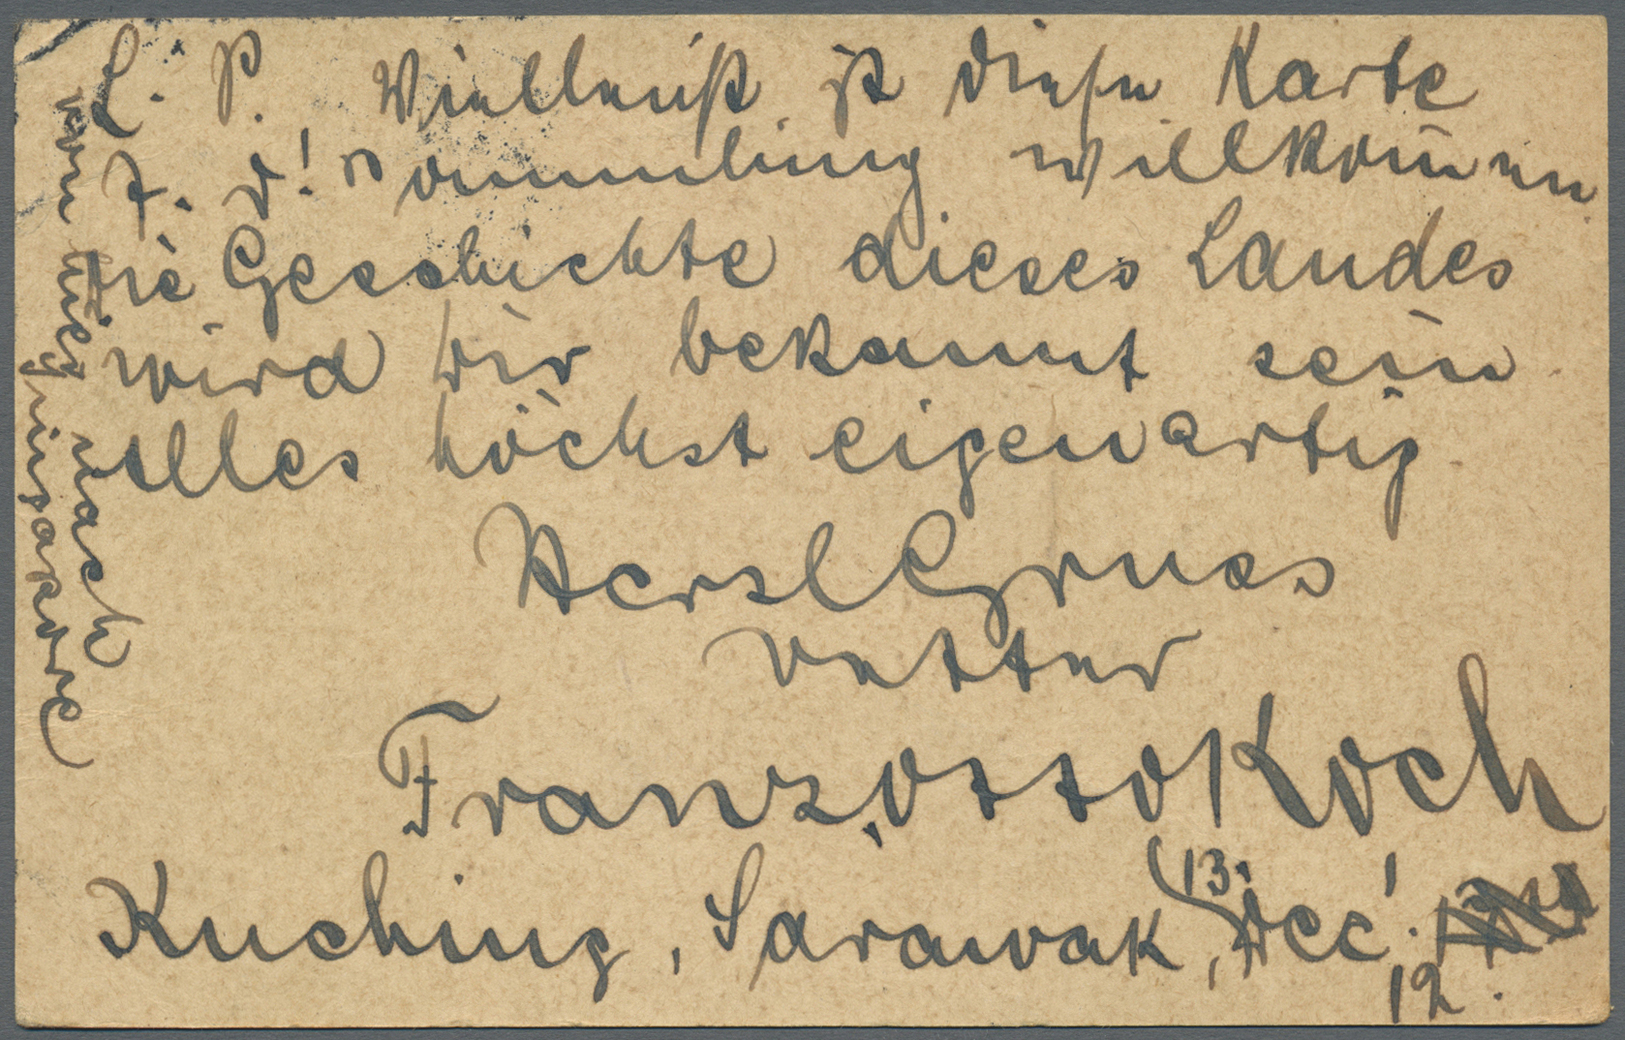 L. P. Vielleicht ist diese Karte
z. d! Sammlung willkom̅men
die Geschichte dieses Landes
wird dir bekannt sein
alles höchst eigenartig
Herzl Gruss
Vetter
Franz Otto Koch
Kuching, Sarawak, 13. Dec'.
12.
von hier nach
Singapore